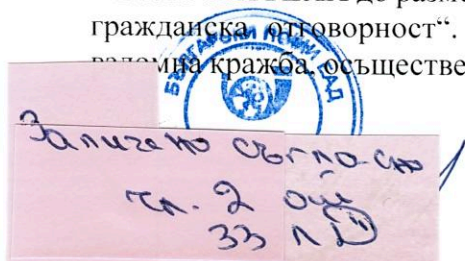 до разме
гражданска отговорност“.
взломна кража, осъществе
БЪЛГАРСКИ ПОЩИ ЕАД
Заличено съгласно
чл. 2 от
ЗЗЛД